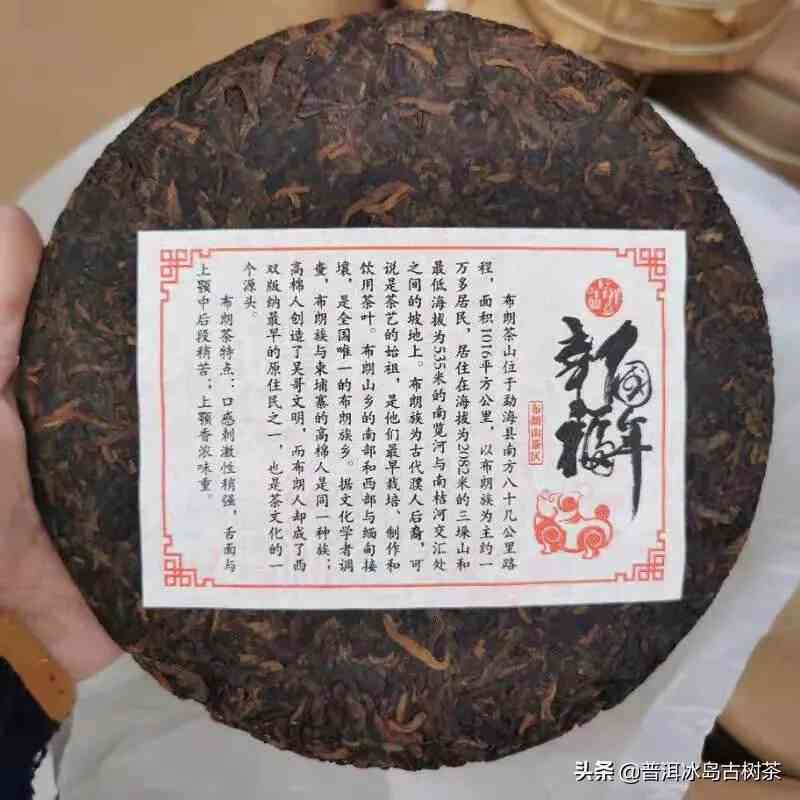 國年
福
布朗山茶区
布朗茶山位于勐海县南方八十几公里路
程，面积1016平方公里，以布朗族为主约一
万多居民，居住在海拔为2082米的三垛山和
最低海拔为535米的南览河与南桔河交汇处
之间的坡地上。布朗族为古代濮人后裔，可
说是茶艺的始祖，是他们最早栽培、制作和
饮用茶叶。布朗山乡的南部和西部与缅甸接
壤，是全国唯一的布朗族乡。据文化学者调
查，布朗族与柬埔寨的高棉人是同一种族；
高棉人创造了吴哥文明，而布朗人却成了西
双版纳最早的原住民之一，也是茶文化的一
个源头。
布朗茶特点：口感刺激性稍强，舌面与
上颚中后段稍苦；上颚香浓味重。
头条 @普洱冰岛古树茶